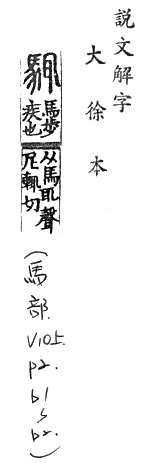 說文解字
大徐本
馬步
疾也
从馬耴聲
尼輒切
(馬部. V105. p2. b1 s b2.)